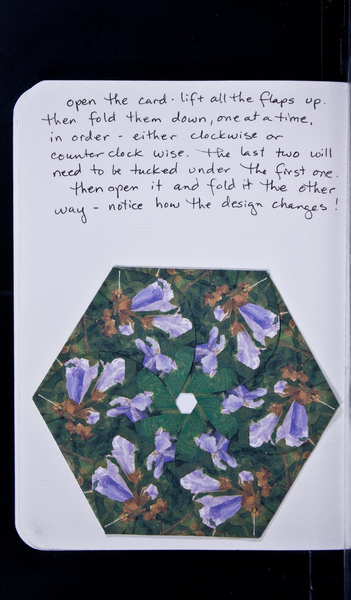 open the card - lift all the flaps up.
then fold them down, one at a time,
in order - either clockwise or
counter clock wise. The last two will
need to be tucked under the first one.
Then open it and fold it the other
way - notice how the design changes!